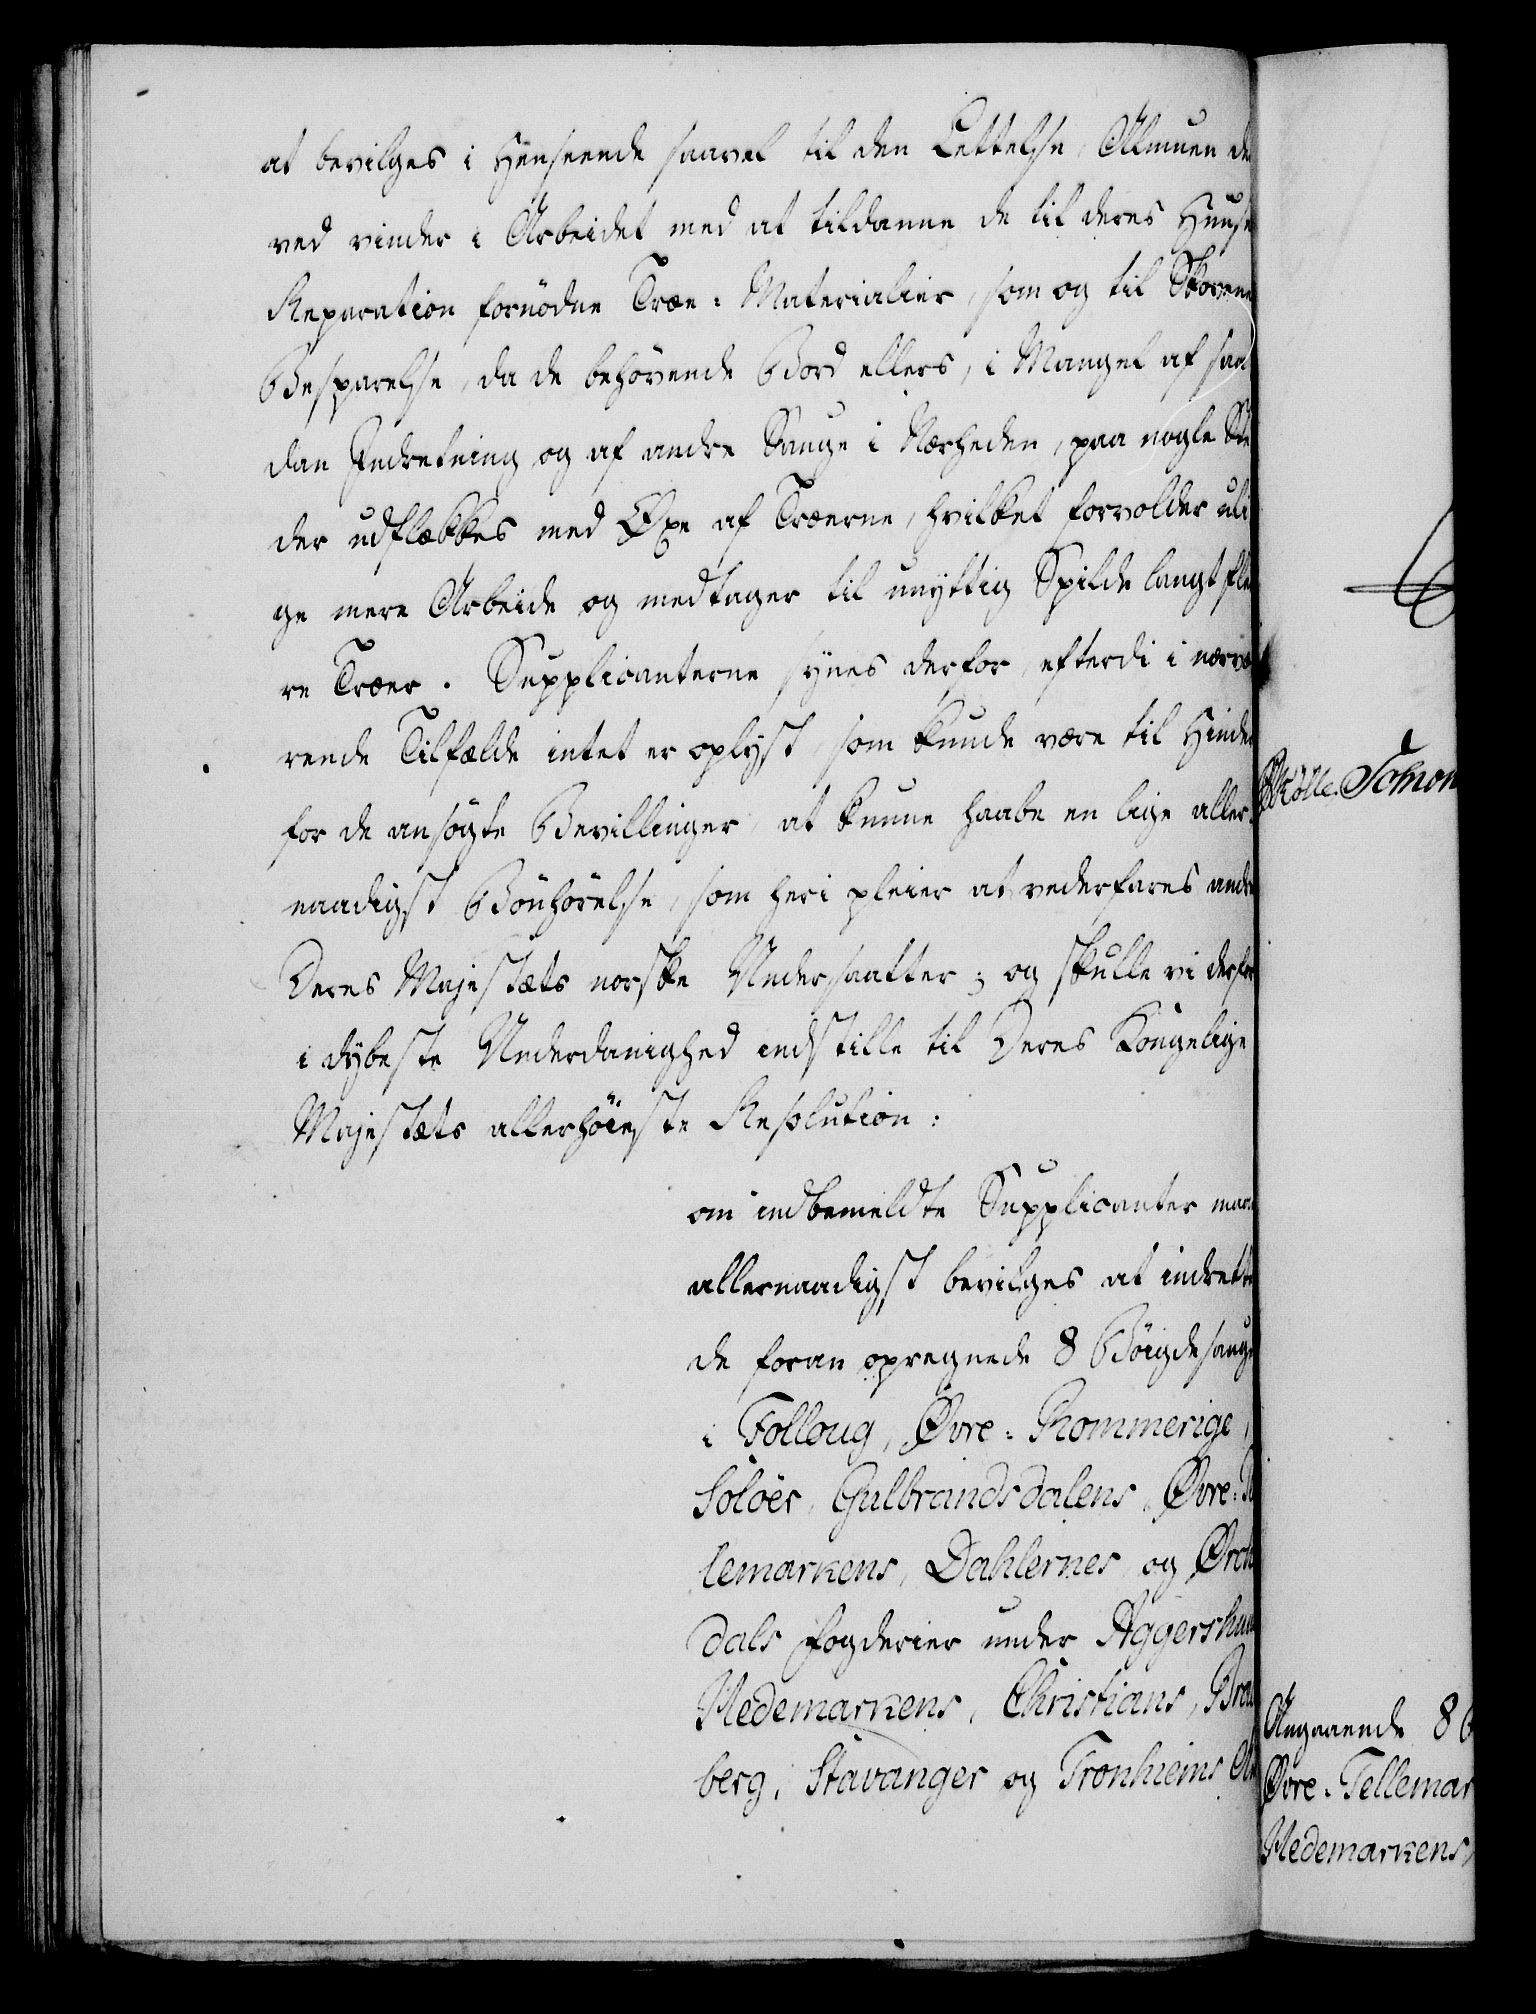 at bevilges i Henseende saavel til den Lettelse, Almuen de
ved vinder i Arbeidet med at tildanne de til deres Huuse
Reparation fornödne Træ-Materialier, som og til Skovene
Besparelse, da de behövende Bord ellers, i Mangel af saa
dan Indretning og af andre Sauge i Nærheden, paa nogle Stæ
der udflækkes med Øxe af Træerne, hvilket forvolder uli
ge mere Arbeide og medtager til unyttig Spilde langt fle
re Træer. Supplicanterne synes derfor, efterdi i nærvæ
rende Tilfælde intet er oplyst, som kunde være til Hinder
for de ansögte Bevillinger, at kunne haabe en lige aller
naadigst Bönhörelse, som heri pleier at vederfares andre
Deres Majestæts norske Undersaatter; og skulle vi derfor
i dybeste Underdanighed indstille til Deres Kongelige
Majestæts allerhöieste Resolution:
om indbemeldte Supplicanter maa
allernaadigst bevilges at indrette
de foran opregnede 8 Böigdesauge
i Folloug, Øvre-Rommerige,
Solöer, Gulbrandsdalens, Øvre-T
lemarkens, Dahlernes, og Ørck
dals Fogderier under Aggershuus
Hedemarkens, Christians, Brad
berg, Stavanger og Tronhiems A
Schon
Angaaende 8
Øvre-Tellemar
Hedemarkens,